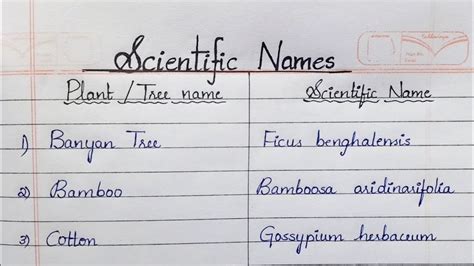 Scientific Names
Plant / Tree name Scientific Name
1) Banyan Tree Ficus benghalensis
2) Bamboo Bamboosa aridinarifolia
3) Cotton Gossypium herbaceum